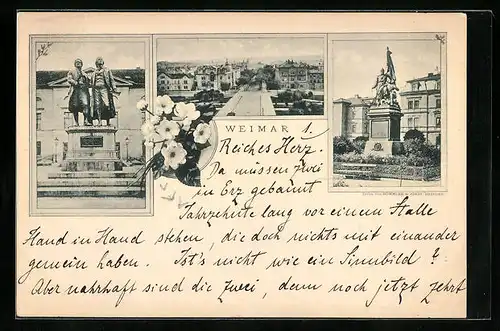 WEIMAR 1.
Reiches Herz.
Da müssen zwei
in Erz gebannt
Jahrzehnte lang vor einem Stalle
Hand in Hand stehen, die doch nichts mit einander
gemein haben. Ist's nicht wie ein Sinnbild?
Aber nahrhaft sind die zwei, denn noch jetzt zehrt